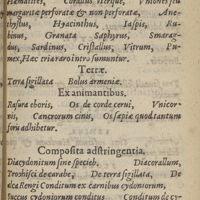 Hæmatites, Corallus uterque, Vniones seu
margaritæ perforatæ & non perforatæ, Ame-
thystus, Hyacinthus, Iaspis, Ru-
binus, Granata Saphyrus, Smarag-
dus, Sardinus, Cristallus, Vitrum, Pu-
mex, Hæc tria raro intrò sumuntur.
Terræ.
Terra sigillata Bolus armeniæ.
Ex animantibus.
Rasura eboris, Os de corde cerui, Vnicor-
nis, Cancrorum cinis, Os sæpiæ quod tantum
foru adhibetur.
Composita adstringentia.
Diacydonitum sine specieb. Diacorallum,
Trochisci de carabe, De terra sigillata, De
Rengi Conditum ex carnibus cydoniorum,
succus cydoniorum conditus Conditum de cy-